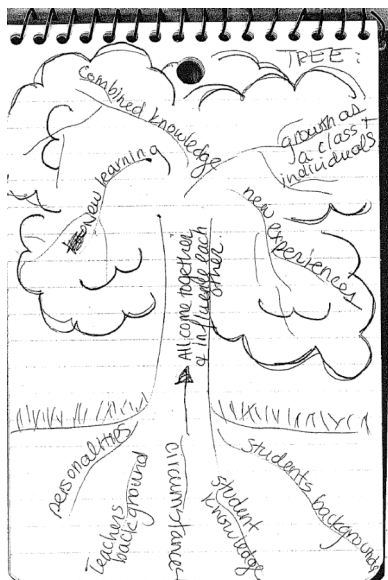 TREE:
combined knowledge
growth as
a class +
individuals
New learning
new experiences
All come together
& influence each
other
personalities
Teachers
background
circumstances
student
knowledge
students backgrounds